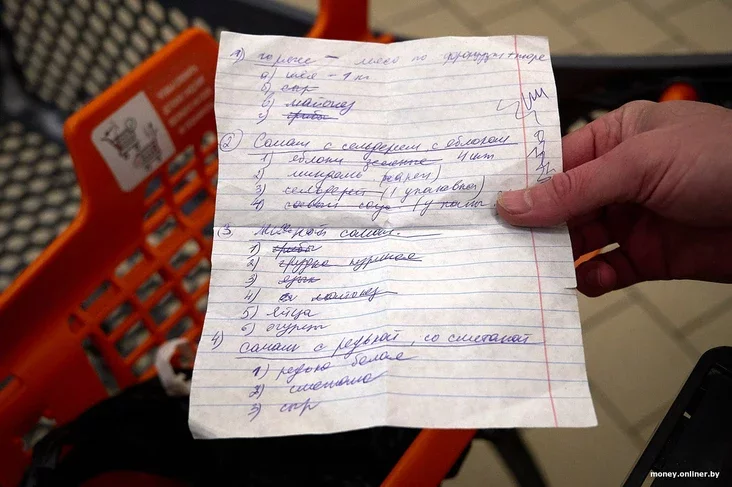 1) горячее – мясо по французски + пюре
а) шея – 1 кг
б) сыр
в) майонез
г) грибы
2) Салат с сельдереем с яблоком
1) яблоки зеленые 4 шт
2) миндаль жарен)
3) сельдерей (1 упаковка)
4) соевый соус (у
3) салат
1) грибы
2) грудка куриная
3) язык
4) майонез
5) яйца
6) огурец
4) салат с редькой, со сметаной
1) редька белая
2) сметана
3) сыр
money.onliner.by